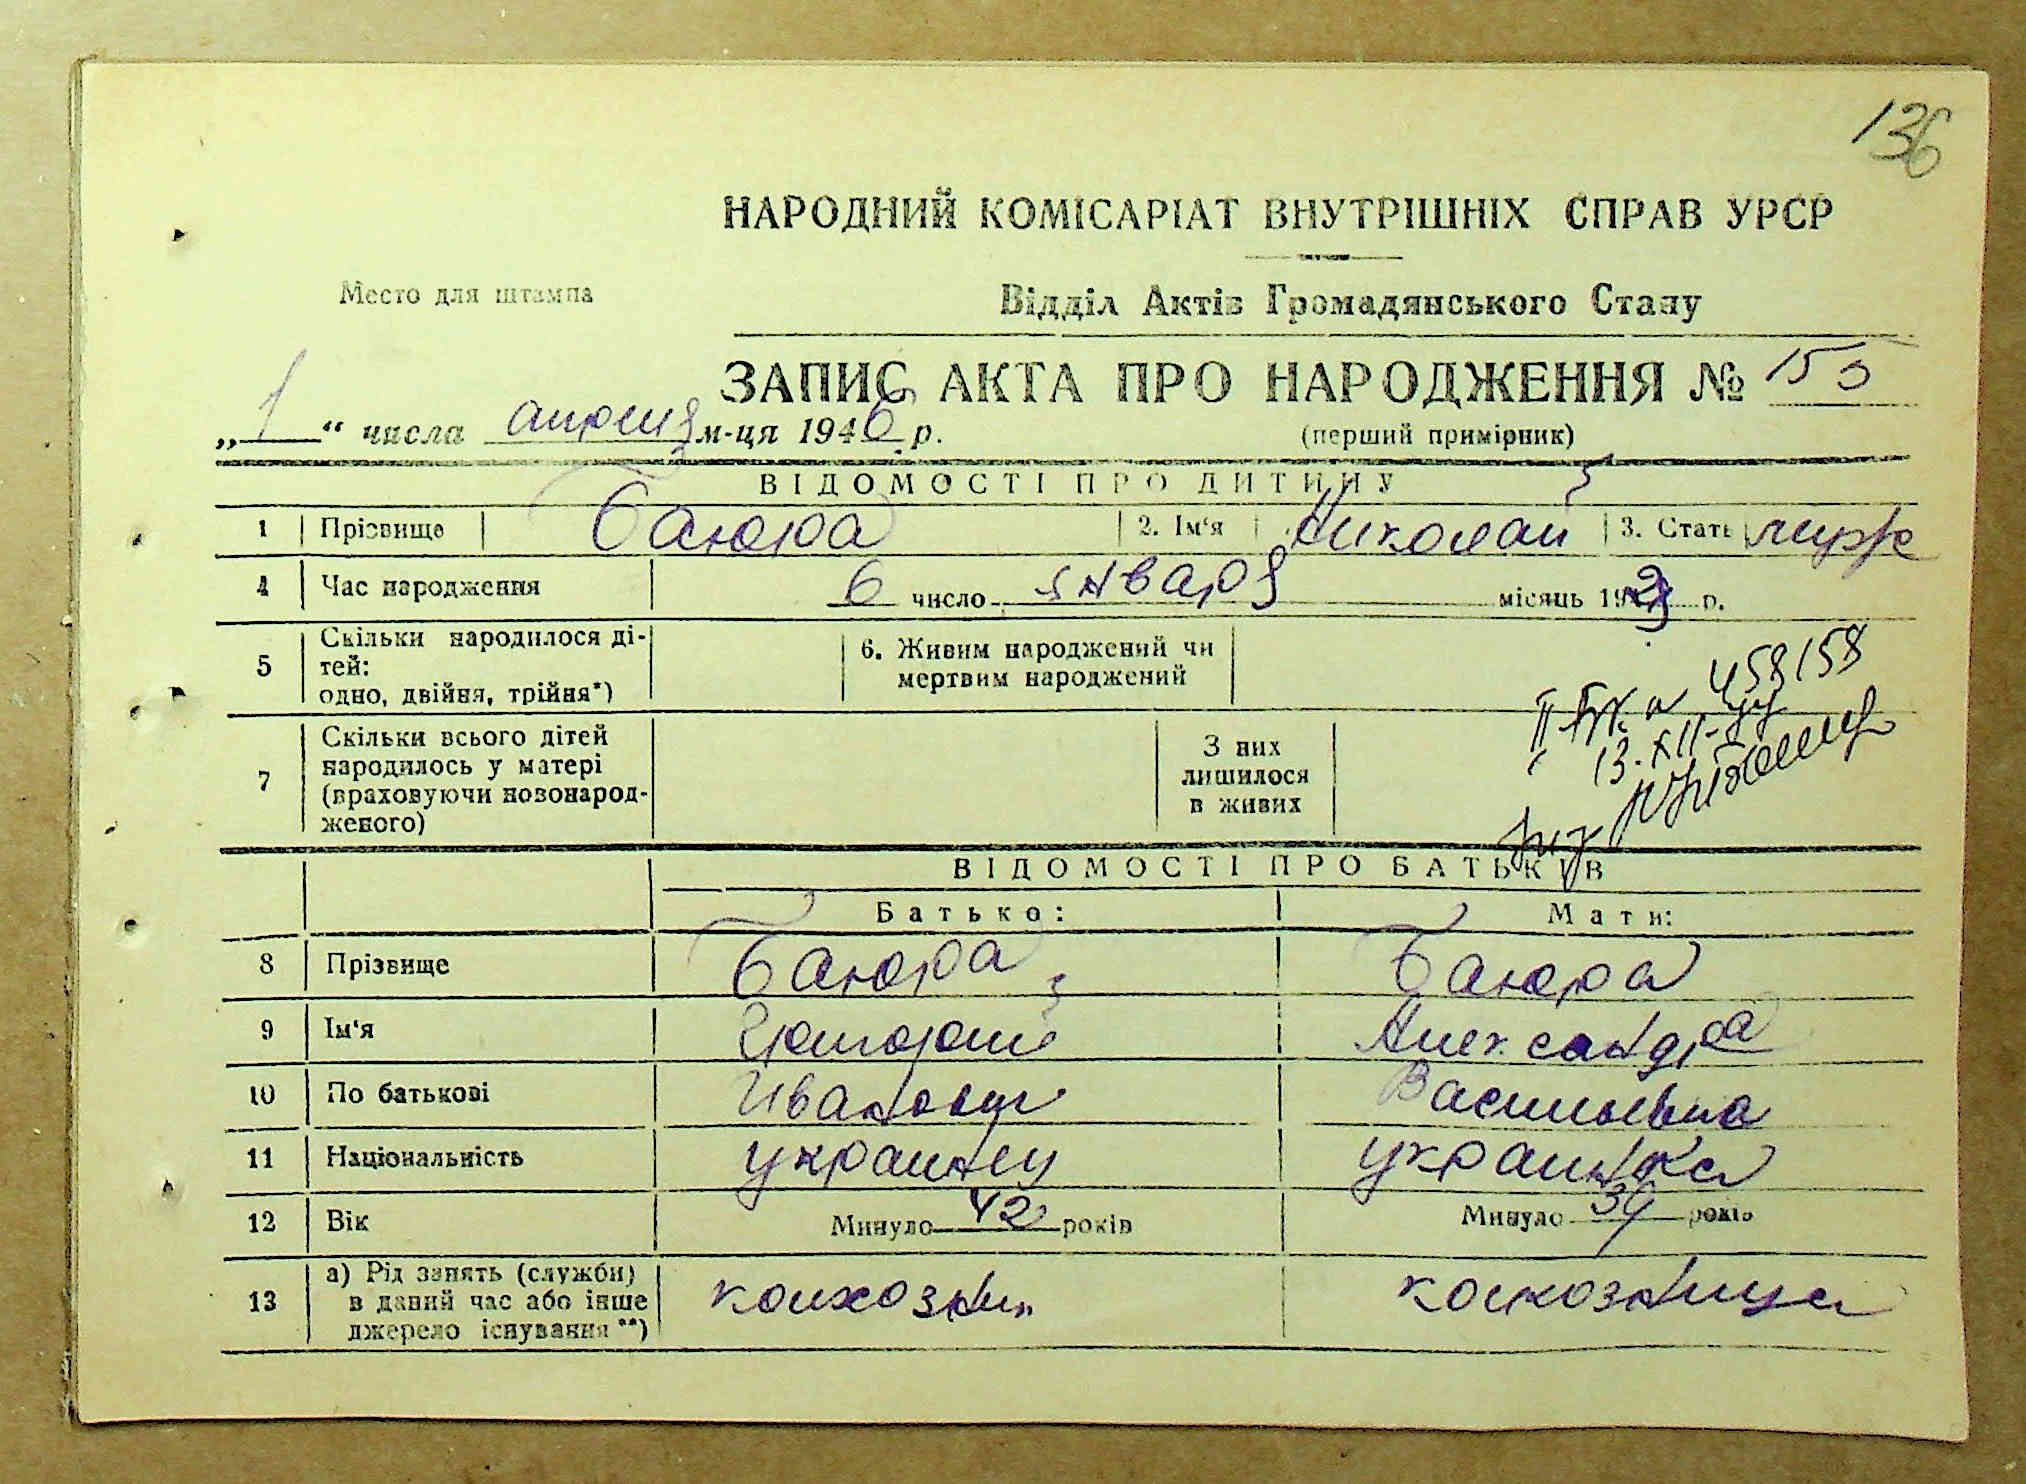 136
НАРОДНИЙ КОМІСАРІАТ ВНУТРІШНІХ СПРАВ УРСР
Место для штампа
Відділ Актів Громадянського Стану
ЗАПИС АКТА ПРО НАРОДЖЕННЯ № 155
„1“ числа апреля м-ця 1946 р.
(перший примірник)
ВІДОМОСТІ ПРО ДИТИНУ
1 Прізвище Баюра 2. Ім‘я Николай 3. Стать муж
4 Час народження 6 число января місяць 19 р.
5 Скільки народилося ді-
тей:
одно, двійня, трійня*)
6. Живим народжений чи
мертвим народжений
7 Скільки всього дітей
народилось у матері
(враховуючи новонарод-
женого)
З них
лишилося
в живих
458158
13.XII-
ВІДОМОСТІ ПРО БАТЬКІВ
Батько: Мати:
8 Прізвище Баюра Баюра
9 Ім‘я Григорий Александра
10 По батькові Иванович Васильевна
11 Національність украинец украинка
12 Вік Минуло 42 років Минуло 39 років
13 а) Рід занять (служби)
в даний час або інше
джерело існування **)
колхозник колхозница